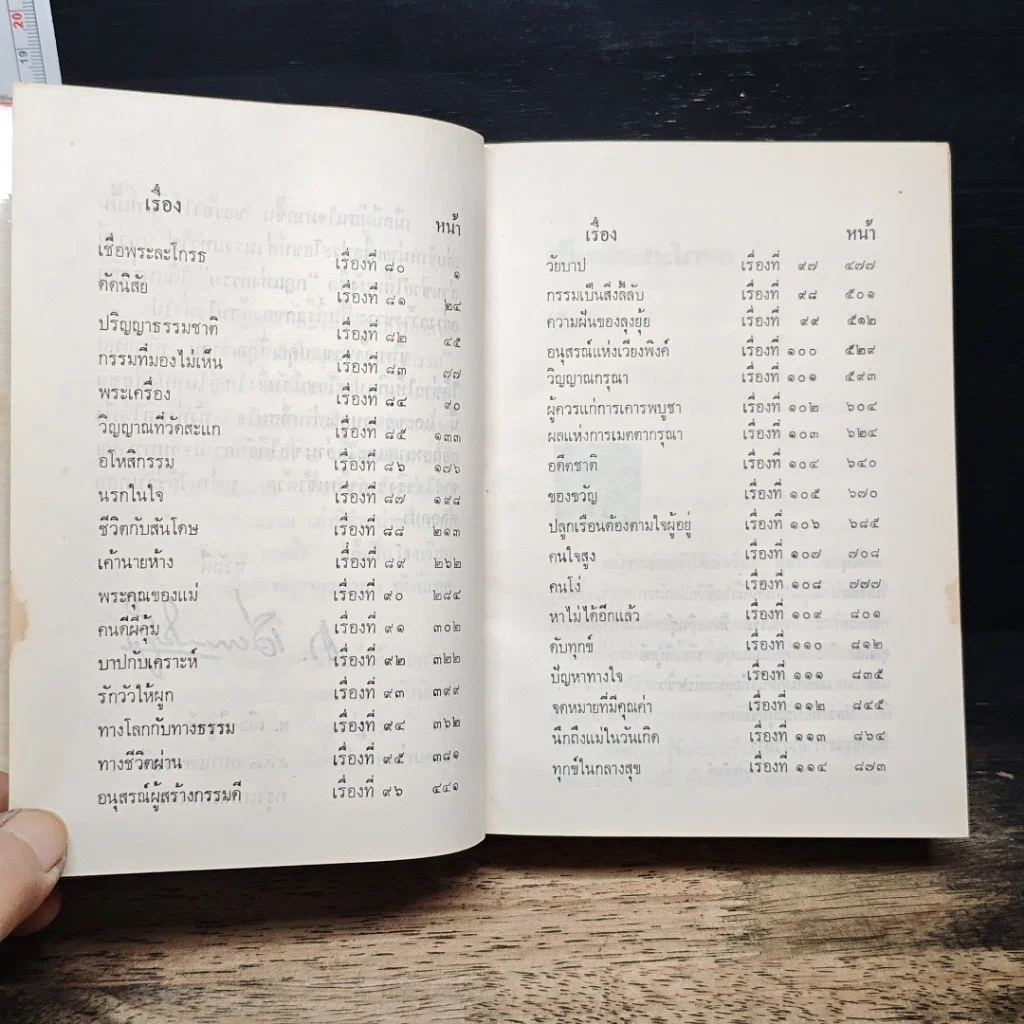 เรื่อง หน้า
เชื่อพระละโกรธ เรื่องที่ ๘๐ ๑
ดัดนิสัย เรื่องที่ ๘๑ ๒๔
ปริญญาธรรมชาติ เรื่องที่ ๘๒ ๔๕
กรรมที่มองไม่เห็น เรื่องที่ ๘๓ ๗๗
พระเครื่อง เรื่องที่ ๘๔ ๙๐
วิญญาณที่วัดสะแก เรื่องที่ ๘๕ ๑๓๓
อโหสิกรรม เรื่องที่ ๘๖ ๑๗๖
นรกในใจ เรื่องที่ ๘๗ ๑๙๘
ชีวิตกับสันโดษ เรื่องที่ ๘๘ ๒๑๓
เค้านายห้าง เรื่องที่ ๘๙ ๒๖๒
พระคุณของแม่ เรื่องที่ ๙๐ ๒๘๔
คนดีผีคุ้ม เรื่องที่ ๙๑ ๓๐๒
บาปกับเคราะห์ เรื่องที่ ๙๒ ๓๒๒
รักวัวให้ผูก เรื่องที่ ๙๓ ๓๙๙
ทางโลกกับทางธรรม เรื่องที่ ๙๔ ๓๖๒
ทางชีวิตผ่าน เรื่องที่ ๙๕ ๓๘๑
อนุสรณ์ผู้สร้างกรรมดี เรื่องที่ ๙๖ ๔๔๑
เรื่อง หน้า
วัยบาป เรื่องที่ ๙๗ ๔๗๗
กรรมเป็นสิ่งลี้ลับ เรื่องที่ ๙๘ ๕๐๑
ความฝันของลุงยุ้ย เรื่องที่ ๙๙ ๕๑๒
อนุสรณ์แห่งเวียงพิงค์ เรื่องที่ ๑๐๐ ๕๒๙
วิญญาณกรุณา เรื่องที่ ๑๐๑ ๕๙๓
ผู้ควรแก่การเคารพบูชา เรื่องที่ ๑๐๒ ๖๐๔
ผลแห่งการเมตตากรุณา เรื่องที่ ๑๐๓ ๖๒๔
อดีตชาติ เรื่องที่ ๑๐๔ ๖๔๐
ของขวัญ เรื่องที่ ๑๐๕ ๖๗๐
ปลูกเรือนต้องตามใจผู้อยู่ เรื่องที่ ๑๐๖ ๖๘๕
คนใจสูง เรื่องที่ ๑๐๗ ๗๐๘
คนโง่ เรื่องที่ ๑๐๘ ๗๗๗
หาไม่ได้อีกแล้ว เรื่องที่ ๑๐๙ ๘๐๑
ดับทุกข์ เรื่องที่ ๑๑๐ ๘๑๒
ปัญหาทางใจ เรื่องที่ ๑๑๑ ๘๓๕
จดหมายที่มีคุณค่า เรื่องที่ ๑๑๒ ๘๔๕
นึกถึงแม่ในวันเกิด เรื่องที่ ๑๑๓ ๘๖๔
ทุกข์ในกลางสุข เรื่องที่ ๑๑๔ ๘๗๓
20
19